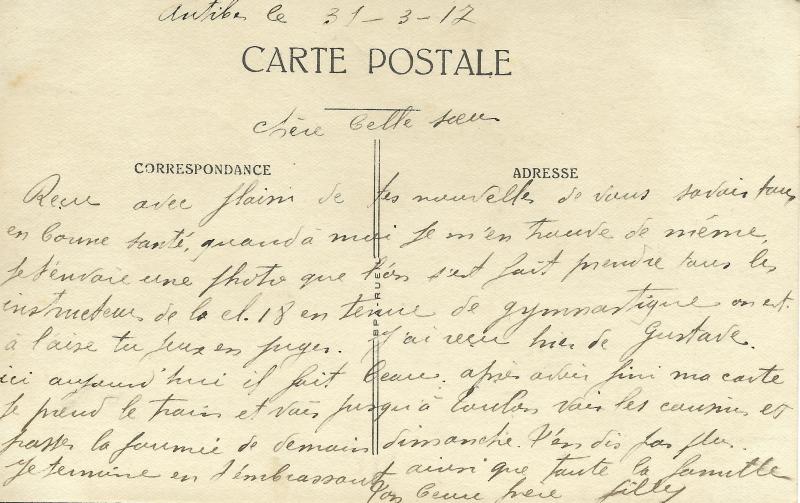 Antibes le 31-3-17
CARTE POSTALE
chère Belle soeur
CORRESPONDANCE
ADRESSE
Reçu avec plaisir de tes nouvelles de vous savoir tous
en bonne santé, quand à moi je m'en trouve de même,
Je t'envoie une photo que l'on s'est fait prendre tous les
instructeurs de la cl. 18 en tenue de gymnastique on est
à l'aise tu peux en juger. J'ai reçu hier de Gustave.
ici aujourd'hui il fait beau, après avoir fini ma carte
Je prend le train et vais jusqu'à Toulon voir les cousins et
passer la journée de demain dimanche. T'en dis pas plus.
Je termine en t'embrassant ainsi que toute la famille
Ton beau frère